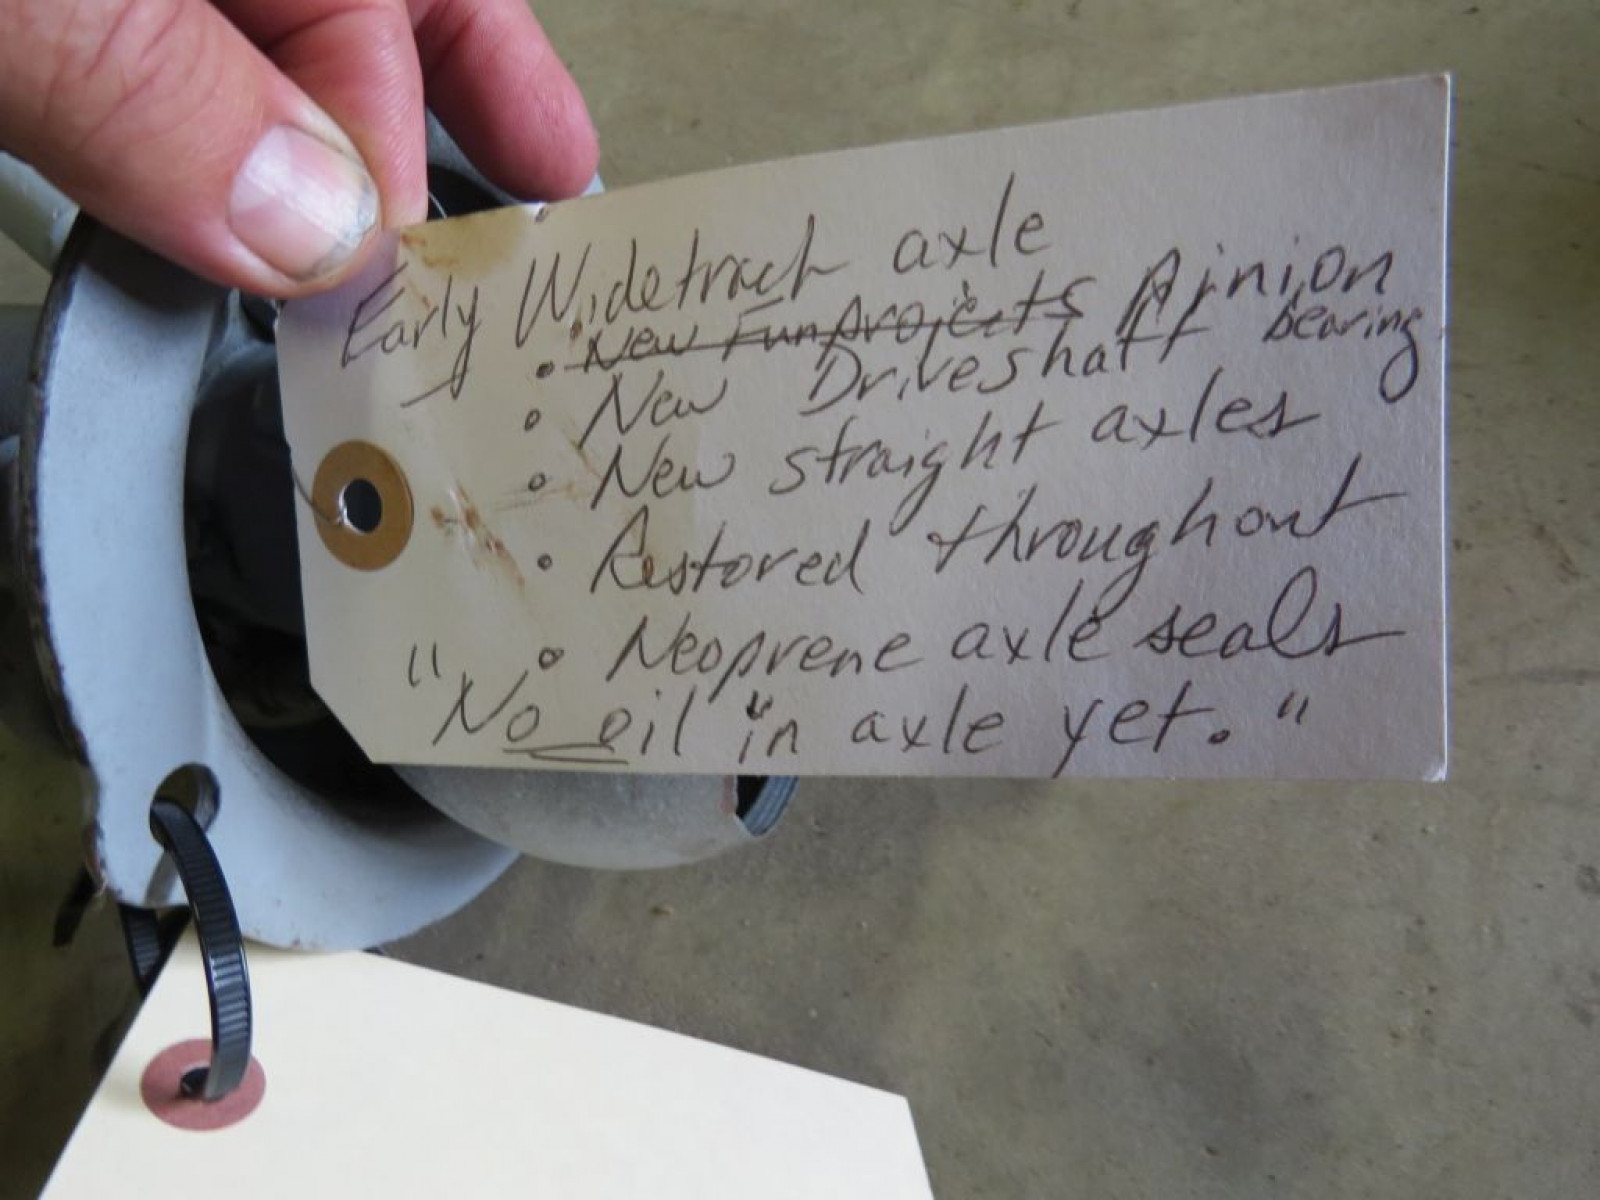 Early Widetrack axle
• New Funprojects Pinion
• New Driveshaft bearing
• New straight axles
• Restored throughout
• Neoprene axle seals
"No oil "in axle yet."